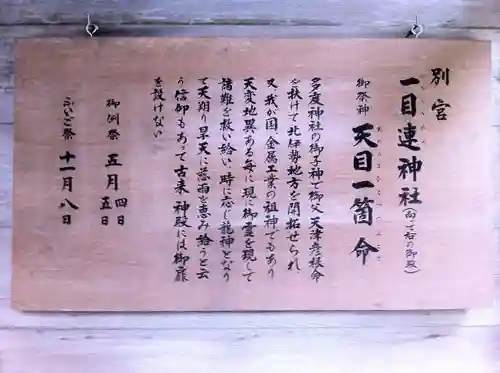 別宮
一目連神社(向って右の御殿)
御祭神 天目一箇命
多度神社の御子神で御父 天津彦根命
を扶けて北伊勢地方を開拓せられ
又我が国金属工業の祖神でもあり
天変地異ある毎に現に御霊を現して
諸難を救い給い 時に応じ龍神となり
て天翔り旱天に慈雨を恵み給うと云
う信仰もあって古来 神殿には御扉
を設けない
御例祭 五月 四日 五日
ふいご祭 十一月八日